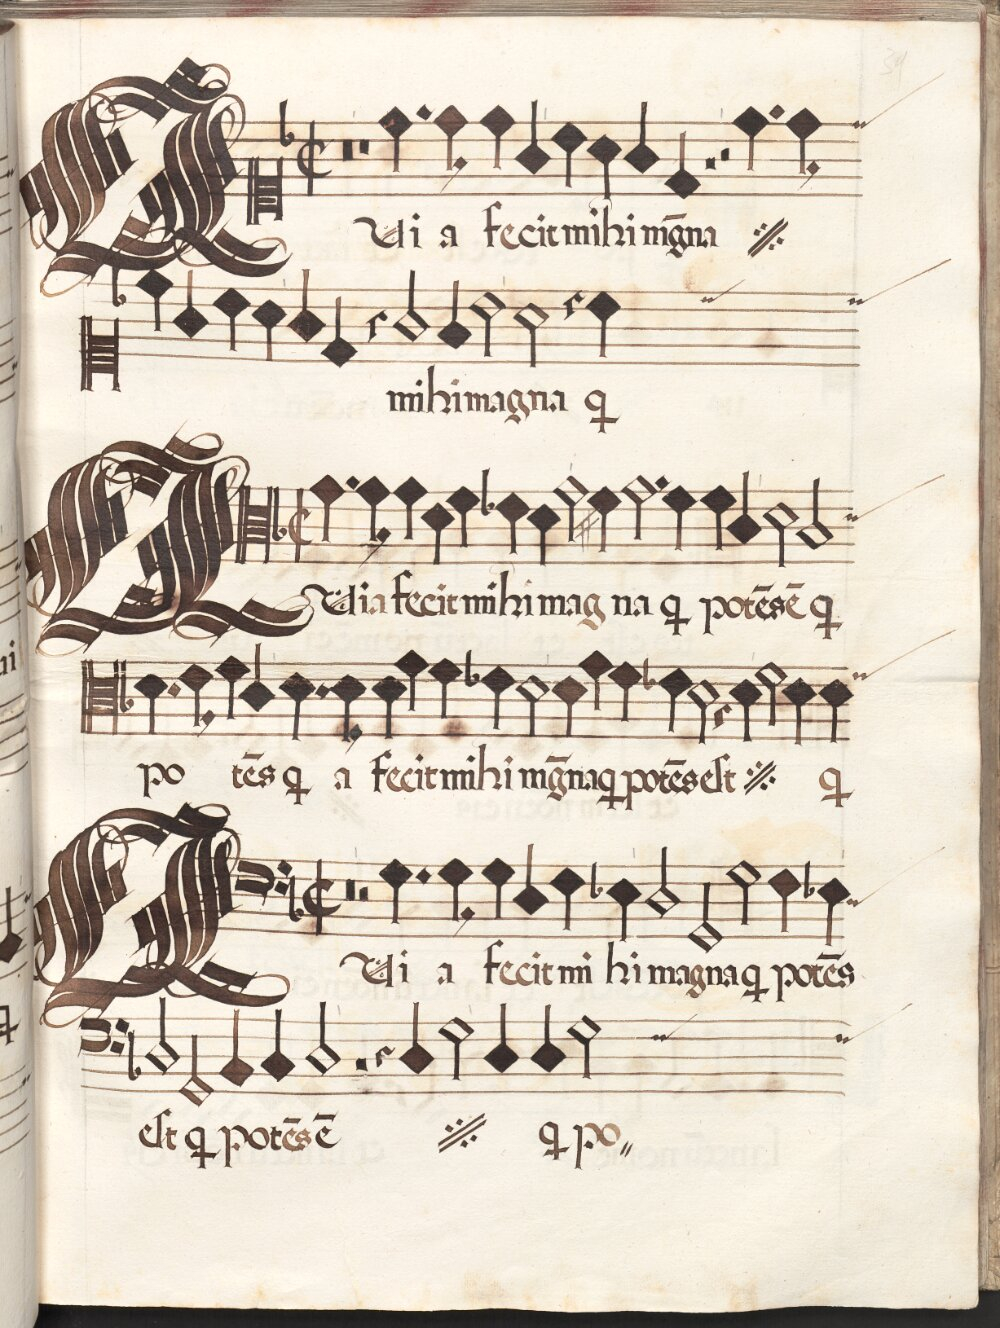 QUi a fecit mihi mg̃na
mihi magna q
QUia fecit mihi mag na q potẽs ẽ q
po tẽs q a fecit mihi mg̃na q potẽs est q
QUi a fecit mi hi magna q potẽs
est q potẽs ẽ q po